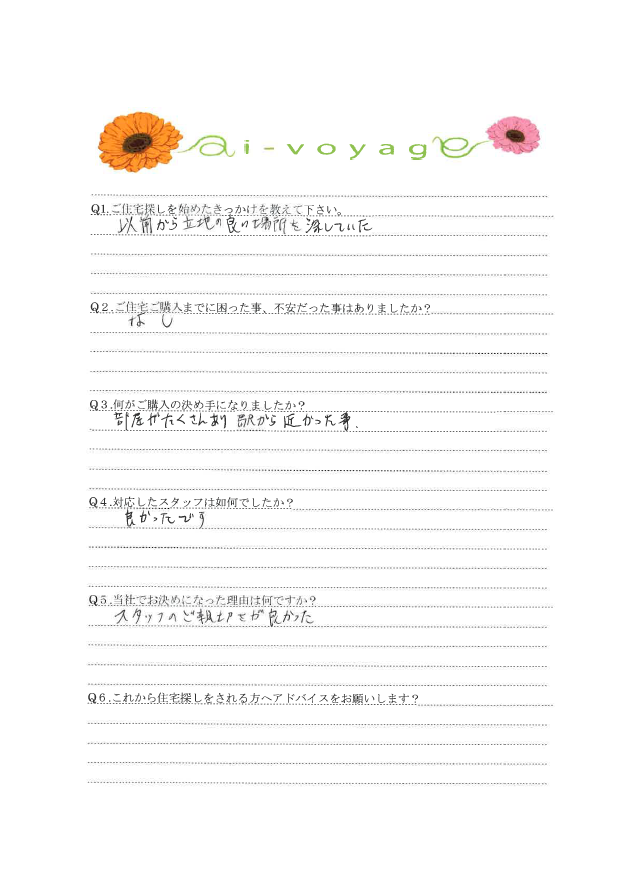 ai-voyage
Q1.ご住宅探しを始めたきっかけを教えて下さい。
以前から立地の良い場所を探していた
Q2.ご住宅ご購入までに困った事、不安だった事はありましたか？
なし
Q3.何がご購入の決め手になりましたか？
部屋がたくさんあり 駅から近かった事.
Q4.対応したスタッフは如何でしたか？
良かったです
Q5.当社でお決めになった理由は何ですか？
スタッフのご親切さが良かった
Q6.これから住宅探しをされる方へアドバイスをお願いします？